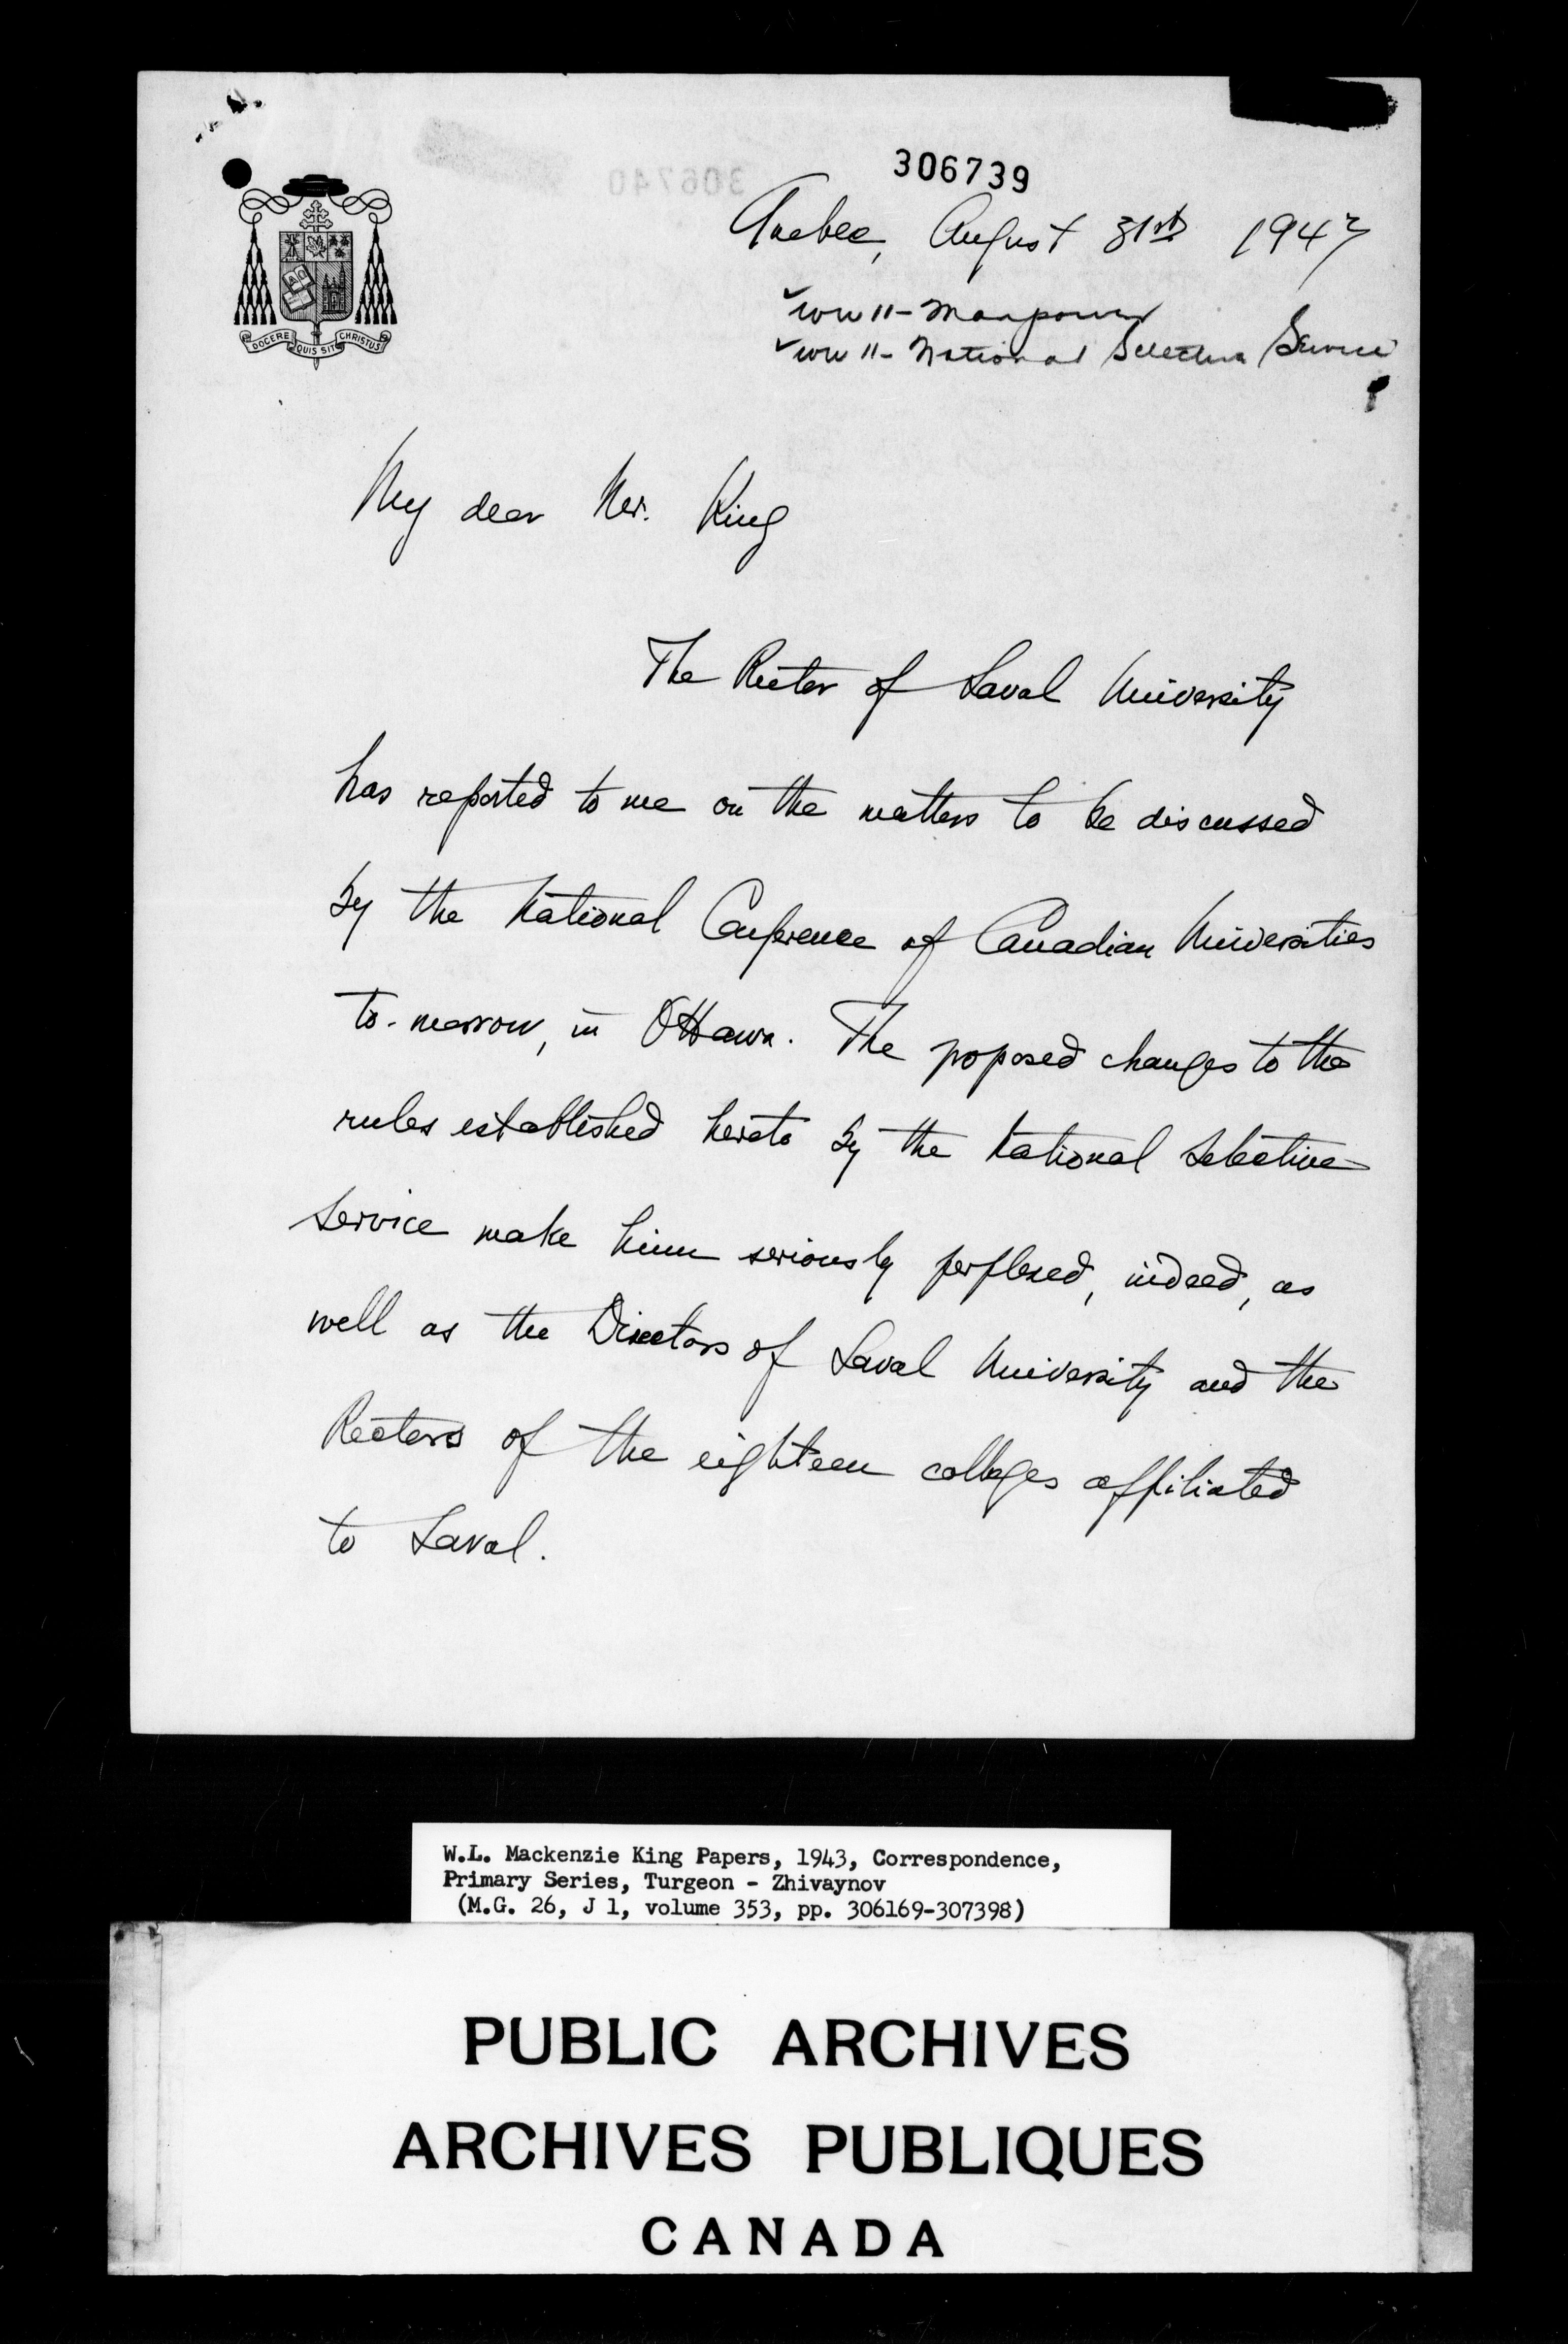 306739
306740
Quebec, August 31st 1943
WW II - Manpower
WW II - National Selective Service
DOCERE QUIS SIT CHRISTUS
My dear Mr. King
The Rector of Laval University
has reported to me on the matters to be discussed
by the National Conference of Canadian Universities
to-morrow, in Ottawa. The proposed changes to the
rules established hereto by the National Selective
Service make him seriously perplexed, indeed, as
well as the Directors of Laval University and the
Rectors of the eighteen colleges affiliated
to Laval.
W.L. Mackenzie King Papers, 1943, Correspondence,
Primary Series, Turgeon - Zhivaynov
(M.G. 26, J 1, volume 353, pp. 306169-307398)
PUBLIC ARCHIVES
ARCHIVES PUBLIQUES
CANADA